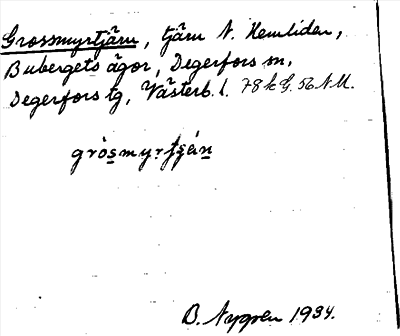 Grossmyrtjärn, tjärn N. Hemliden,
Bubergets ägor, Degerfors sn,
Degerfors tg, Västerb. l. 78 k G. 56 N M.
gròsmyrtjän
B. Nygren 1934.